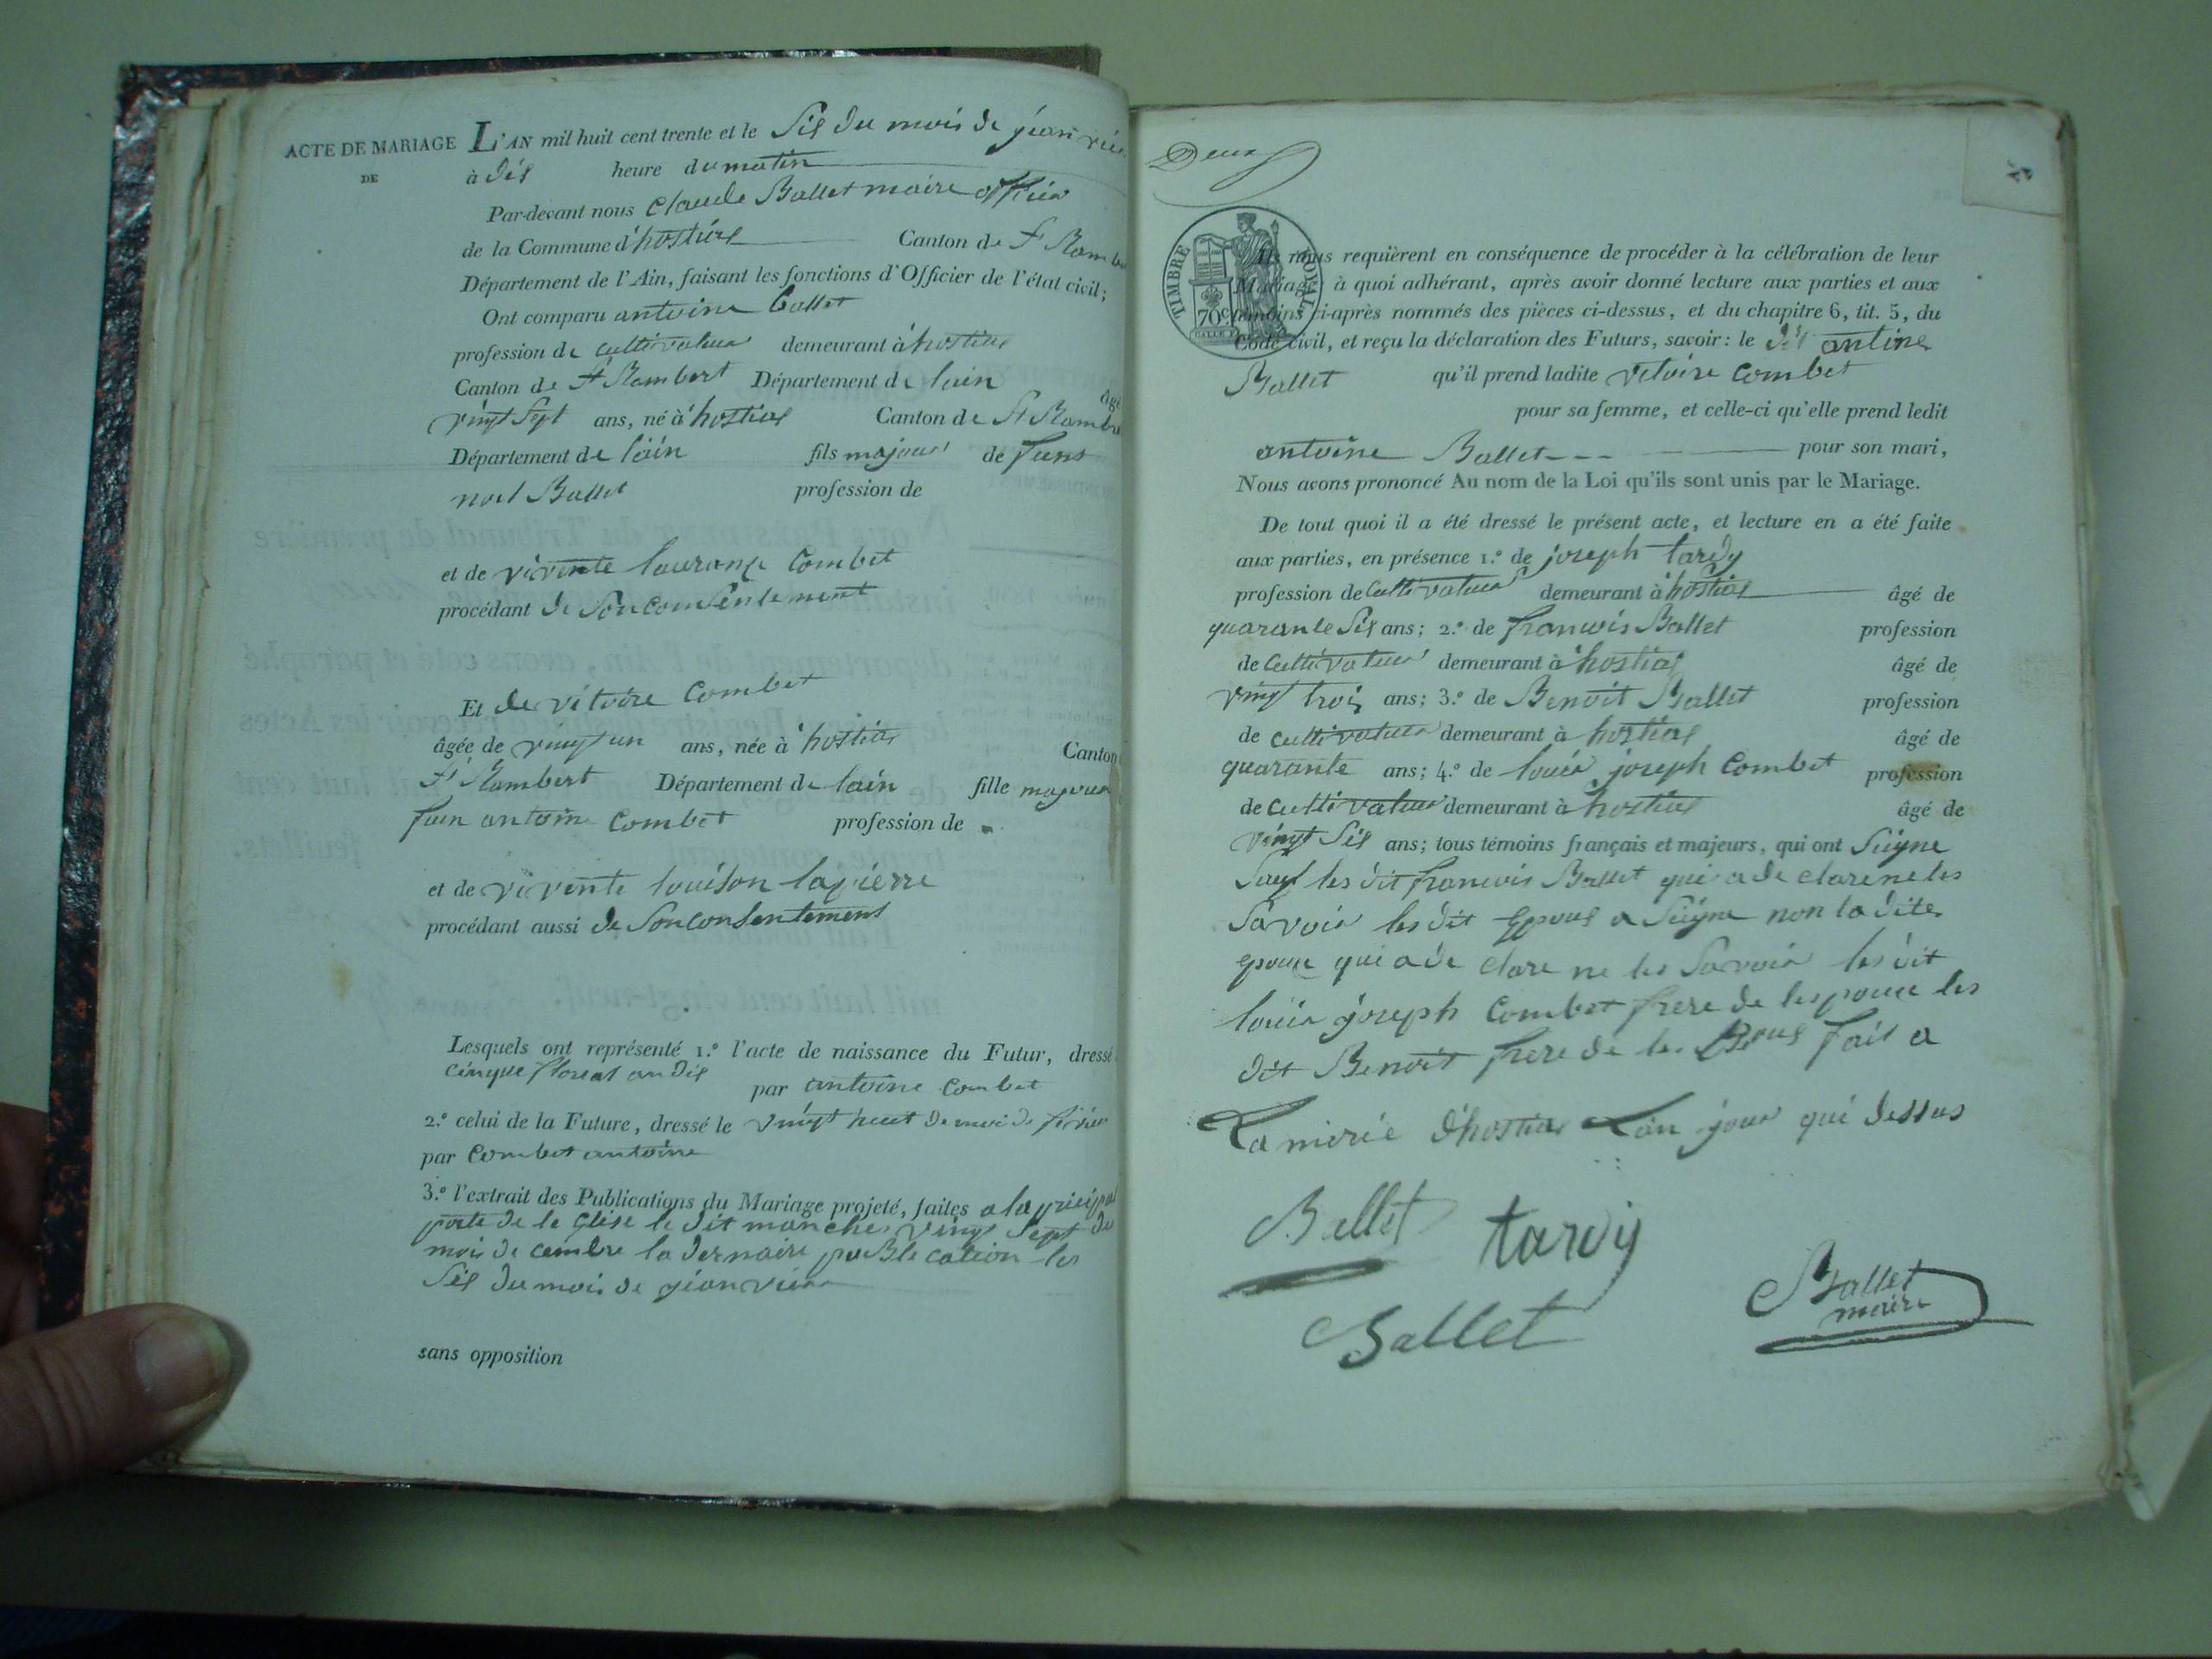 ACTE DE MARIAGE
DE
L'AN mil huit cent trente et le Sis du mois de jeanvié
à dis heure du matin
Par-devant nous claude Ballet maire officié
de la Commune d'hostias Canton de St Rambe
Département de l'Ain, faisant les fonctions d'Officier de l'état civil;
Ont comparu antoine Ballet
profession de cultivateur demeurant à hostias
Canton de St Rambert Département de lain âgé
vingt Sept ans, né à hostias Canton de St Rambe
Département de lain fils majeur de funs
noel Ballet profession de
et de vivente laurance Combet
procédant de Son consentement
Et de vitoire Combet
âgée de vingt un ans, née à hostias Canton
St Rambert Département de lain fille majeur
fun antoine Combet profession de
et de vivente louison lapierre
procédant aussi de Son consentement
Lesquels ont représenté 1.º l'acte de naissance du Futur, dressé
cinque floreal an dis par antoine Combet
2.º celui de la Future, dressé le vingt huit de moi de
par Combet antoine
3.º l'extrait des Publications du Mariage projeté, faites a la pricipal
porte de le Glise le dit manche vingt Sept du
mois de cembre la dernaire puBlecation les
Sis du mois de jeanvier
sans opposition
Deux
TIMBRE ROYAL
70 c
Ils nous requièrent en conséquence de procéder à la célébration de leur
Mariage, à quoi adhérant, après avoir donné lecture aux parties et aux
témoins ci-après nommés des pièces ci-dessus, et du chapitre 6, tit. 5, du
Code civil, et reçu la déclaration des Futurs, savoir: le dit antine
Ballet qu'il prend ladite vitoire Combet
pour sa femme, et celle-ci qu'elle prend ledit
antoine Ballet pour son mari,
Nous avons prononcé Au nom de la Loi qu'ils sont unis par le Mariage.
De tout quoi il a été dressé le présent acte, et lecture en a été faite
aux parties, en présence 1.º de joseph tardy
profession de Cultivateur demeurant à hostias âgé de
quarante Sis ans; 2.º de francois Ballet profession
de Cultivateur demeurant à hostias âgé de
vingt trois ans; 3.º de Benoit Ballet profession
de cultivateur demeurant à hostias âgé de
quarante ans; 4.º de louis joseph Combet profession
de Cultivateur demeurant à hostias âgé de
vingt Sis ans; tous témoins français et majeurs, qui ont Siigne
Sauf les dit francois Ballet qui a de clare ne les
Savoir les dit Epous a Siigne non la dite
epouse qui a de clare ne les Savoir les dit
louis joseph Combet frere de lespouse les
dit Benoit frere de les Epous fait a
La mirie d'hostias Lan jour qui dessus
Ballet tardy
Ballet
Ballet
maire